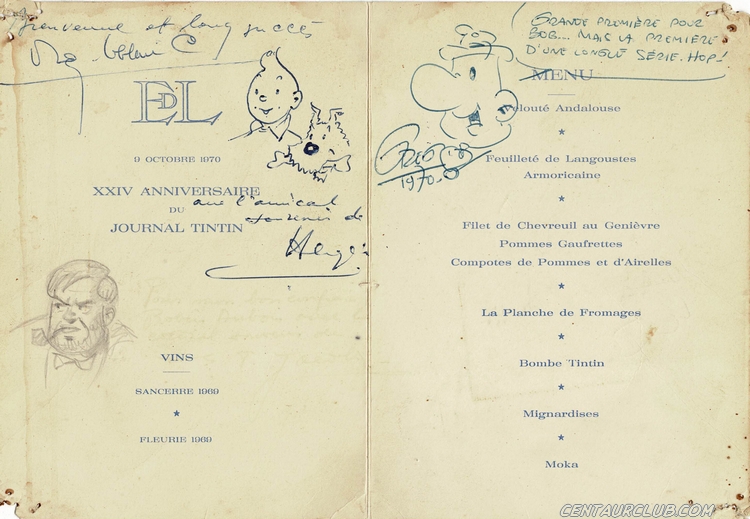 Bienvenue et long succès
EDL
9 OCTOBRE 1970
XXIV ANNIVERSAIRE
DU
JOURNAL TINTIN
avec l'amical
souvenir de
Hergé
VINS
SANCERRE 1969
★
FLEURIE 1969
GRANDE PREMIÈRE POUR
BOB... MAIS LA PREMIÈRE
D'UNE LONGUE SÉRIE. HOP!
MENU
Velouté Andalouse
★
GREG
1970
Feuilleté de Langoustes
Armoricaine
★
Filet de Chevreuil au Genièvre
Pommes Gaufrettes
Compotes de Pommes et d'Airelles
★
La Planche de Fromages
★
Bombe Tintin
★
Mignardises
★
Moka
CENTAURCLUB.COM